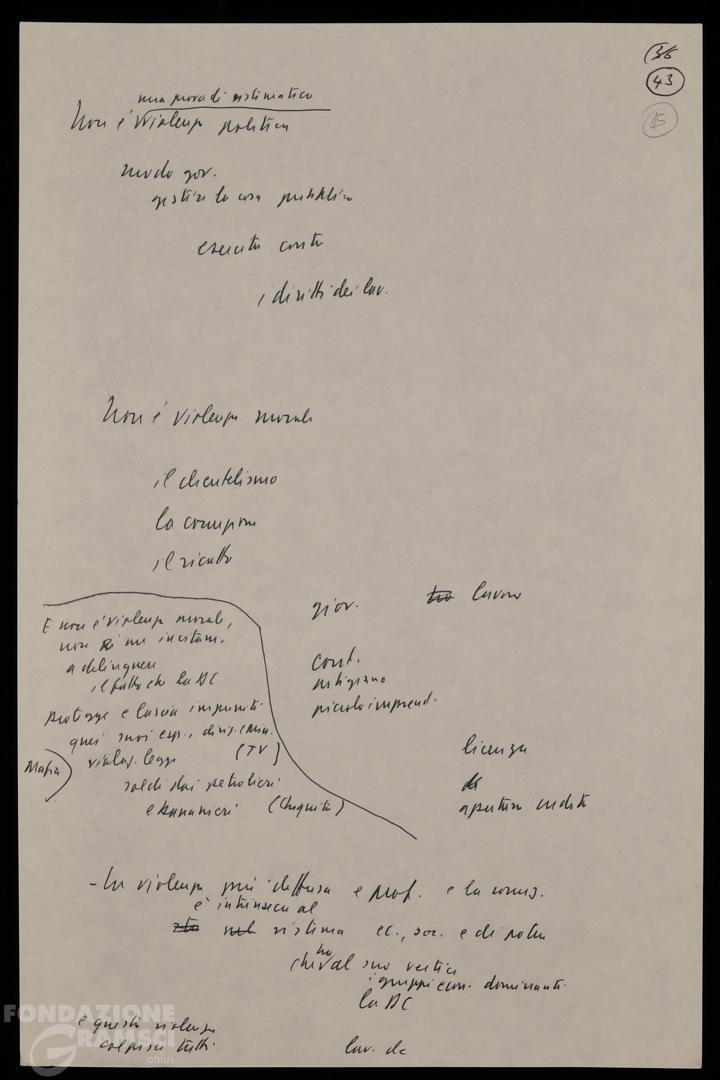 36
43
15
una prova di sistematica
Non è violenza politica
modo gov.
gestire la cosa pubblica
esercitata contro
i diritti dei lav.
Non è violenza morale
il clientelismo
la corruzione
il ricatto
giov.
lavoro
cont.
artigiano
piccolo imprend.
licenza
apertura credito
E non è violenza morale,
non è un incitam.
a delinquere
il fatto che la DC
protegge e lascia impuniti
quei suoi esp., dirig. e Min.
violaz. legge (TV)
Mafia
soldi dai petrolieri
e bananieri (Chiquita)
- La violenza più diffusa e prof. e la
è intrinseca al
sistema ec., soc. e di potere
che ha al suo vertice
i gruppi econ. dominanti
la DC
e questa violenza
colpisce tutti
lav. dc
FONDAZIONE
GRAMSCI
onlus